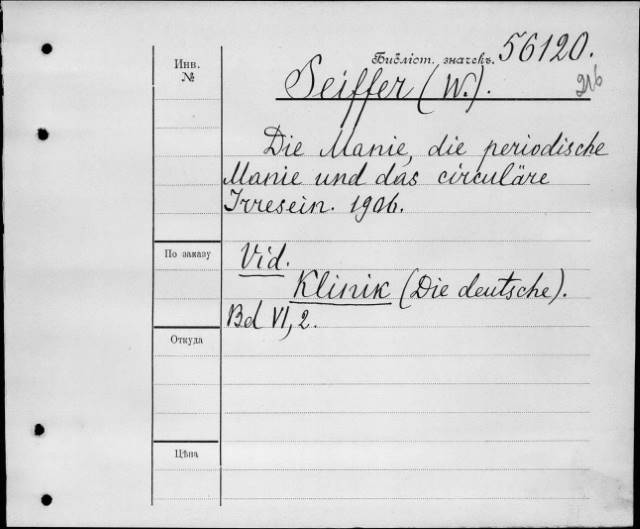 Инв.
№
Библіот. значекъ. 56120.
Seiffer (W.).
Die Manie, die periodische
Manie und das circuläre
Irresein. 1906.
По заказу
Vid.
Klinik (Die deutsche).
Bd VI, 2.
Откуда
Цѣна